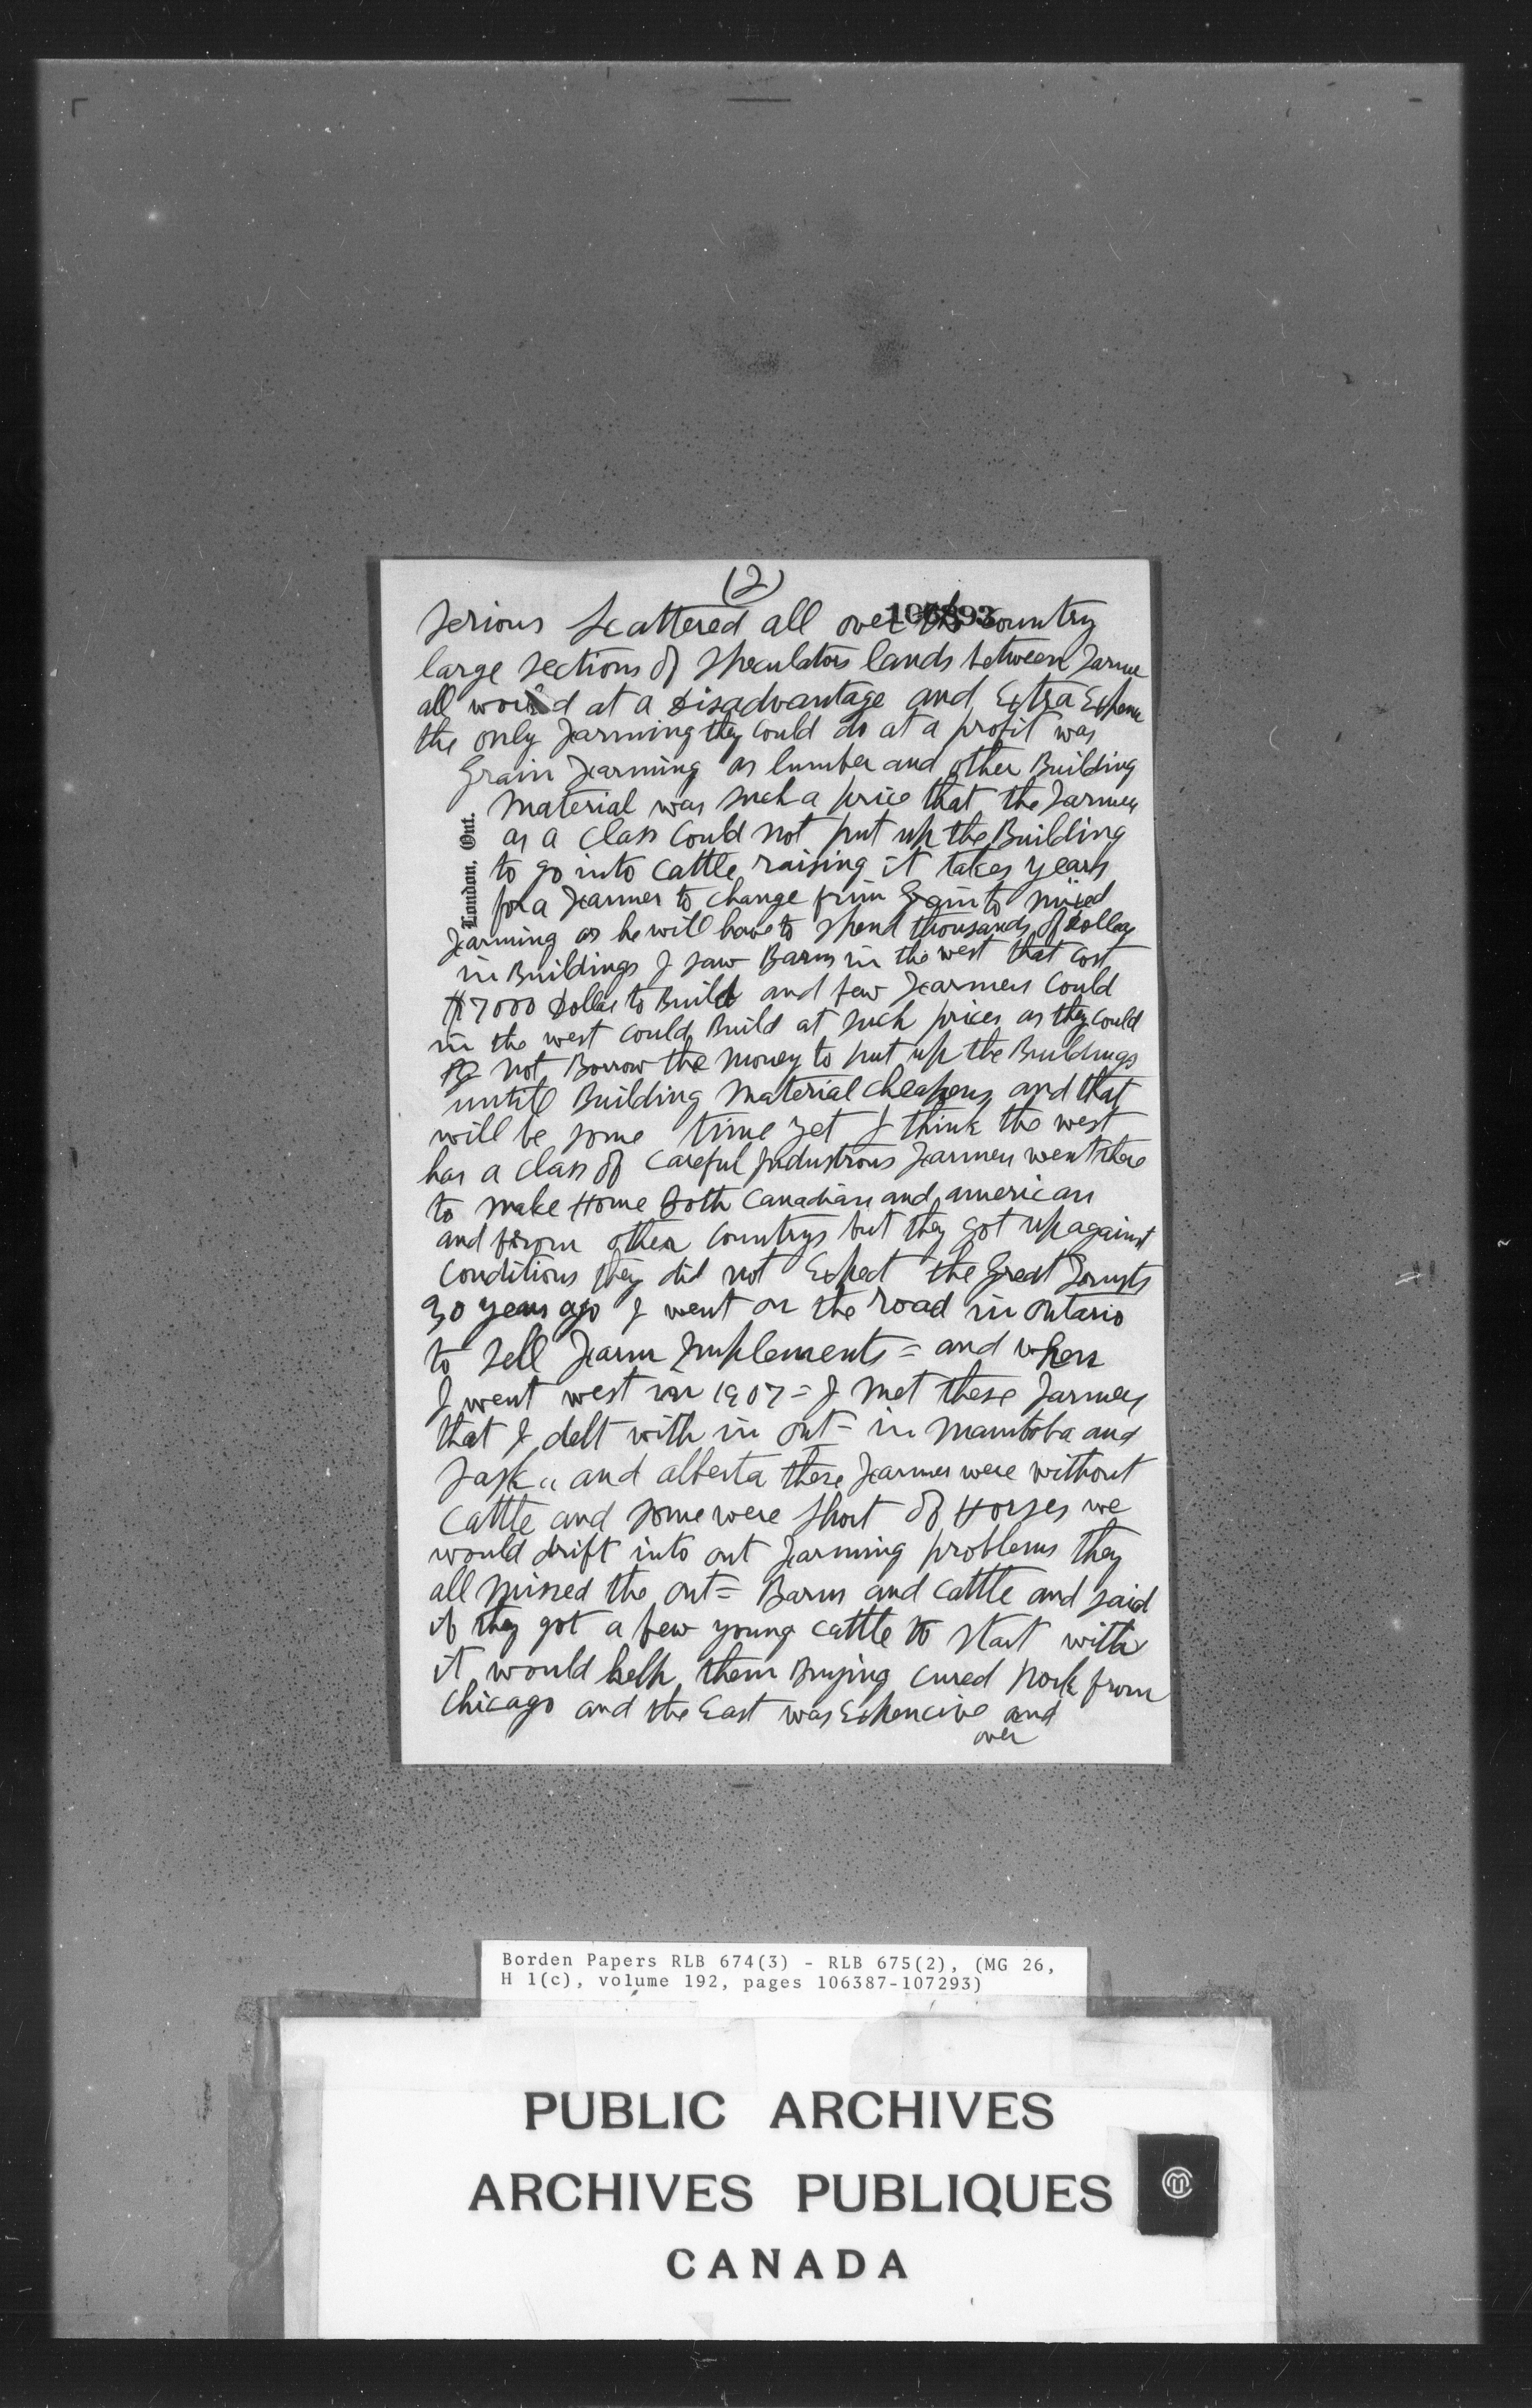 (2)
106893
serious scattered all over the country
large sections of speculators lands between farme
all word at a disadvantage and Extra Expene
the only farming they could do at a profit was
Grain farming as lumber and other Building
Material was such a price that the farmers
as a class could not put up the Building
to go into cattle raising it takes years
for a farmer to change from Grain to mixed
farming as he will have to spend thousands of dollars
in Buildings I saw Barns in the west that cost
$7000 Dollars to Build and few farmers could
in the west could Build at such prices as they could
not Borrow the money to put up the Buildings
until Building Material cheapens and that
will be some time yet I think the west
has a class of careful Industrous farmers went there
to make Home Both Canadian and american
and from other countrys but they got up against
conditions they did not Expect the Great
30 years ago I went on the road in Ontario
to sell farm Implements = and when
I went west in 1907 = I met these farmers
that I delt with in Ont = in Manitoba and
Sask " and alberta these farmers were without
cattle and some were short of Horses we
would drift into ont farming problems they
all missed the ont = Barns and cattle and said
if they got a few young cattle to start with
it would help them Buying cured Pork from
Chicago and the East was Expencive and
over
London, Ont.
Borden Papers RLB 674(3) - RLB 675(2), (MG 26,
H 1(c), volume 192, pages 106387-107293)
PUBLIC ARCHIVES
ARCHIVES PUBLIQUES
CANADA